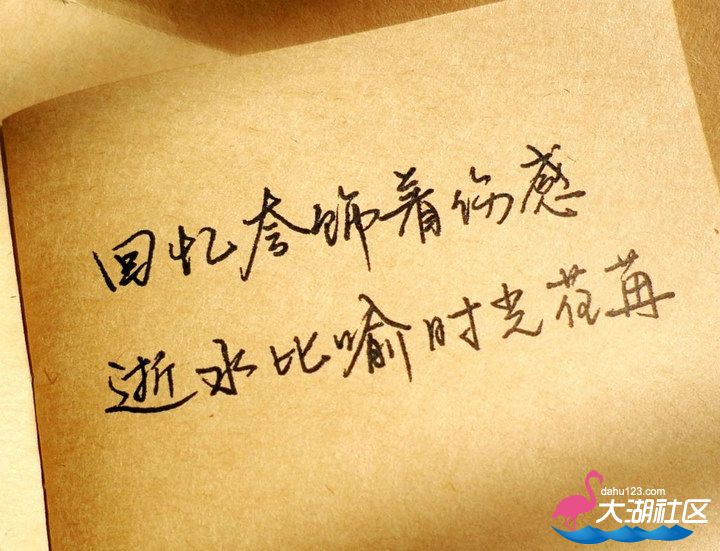 回忆夸饰着伤感
逝水比喻时光荏苒
dahu123.com
大湖社区